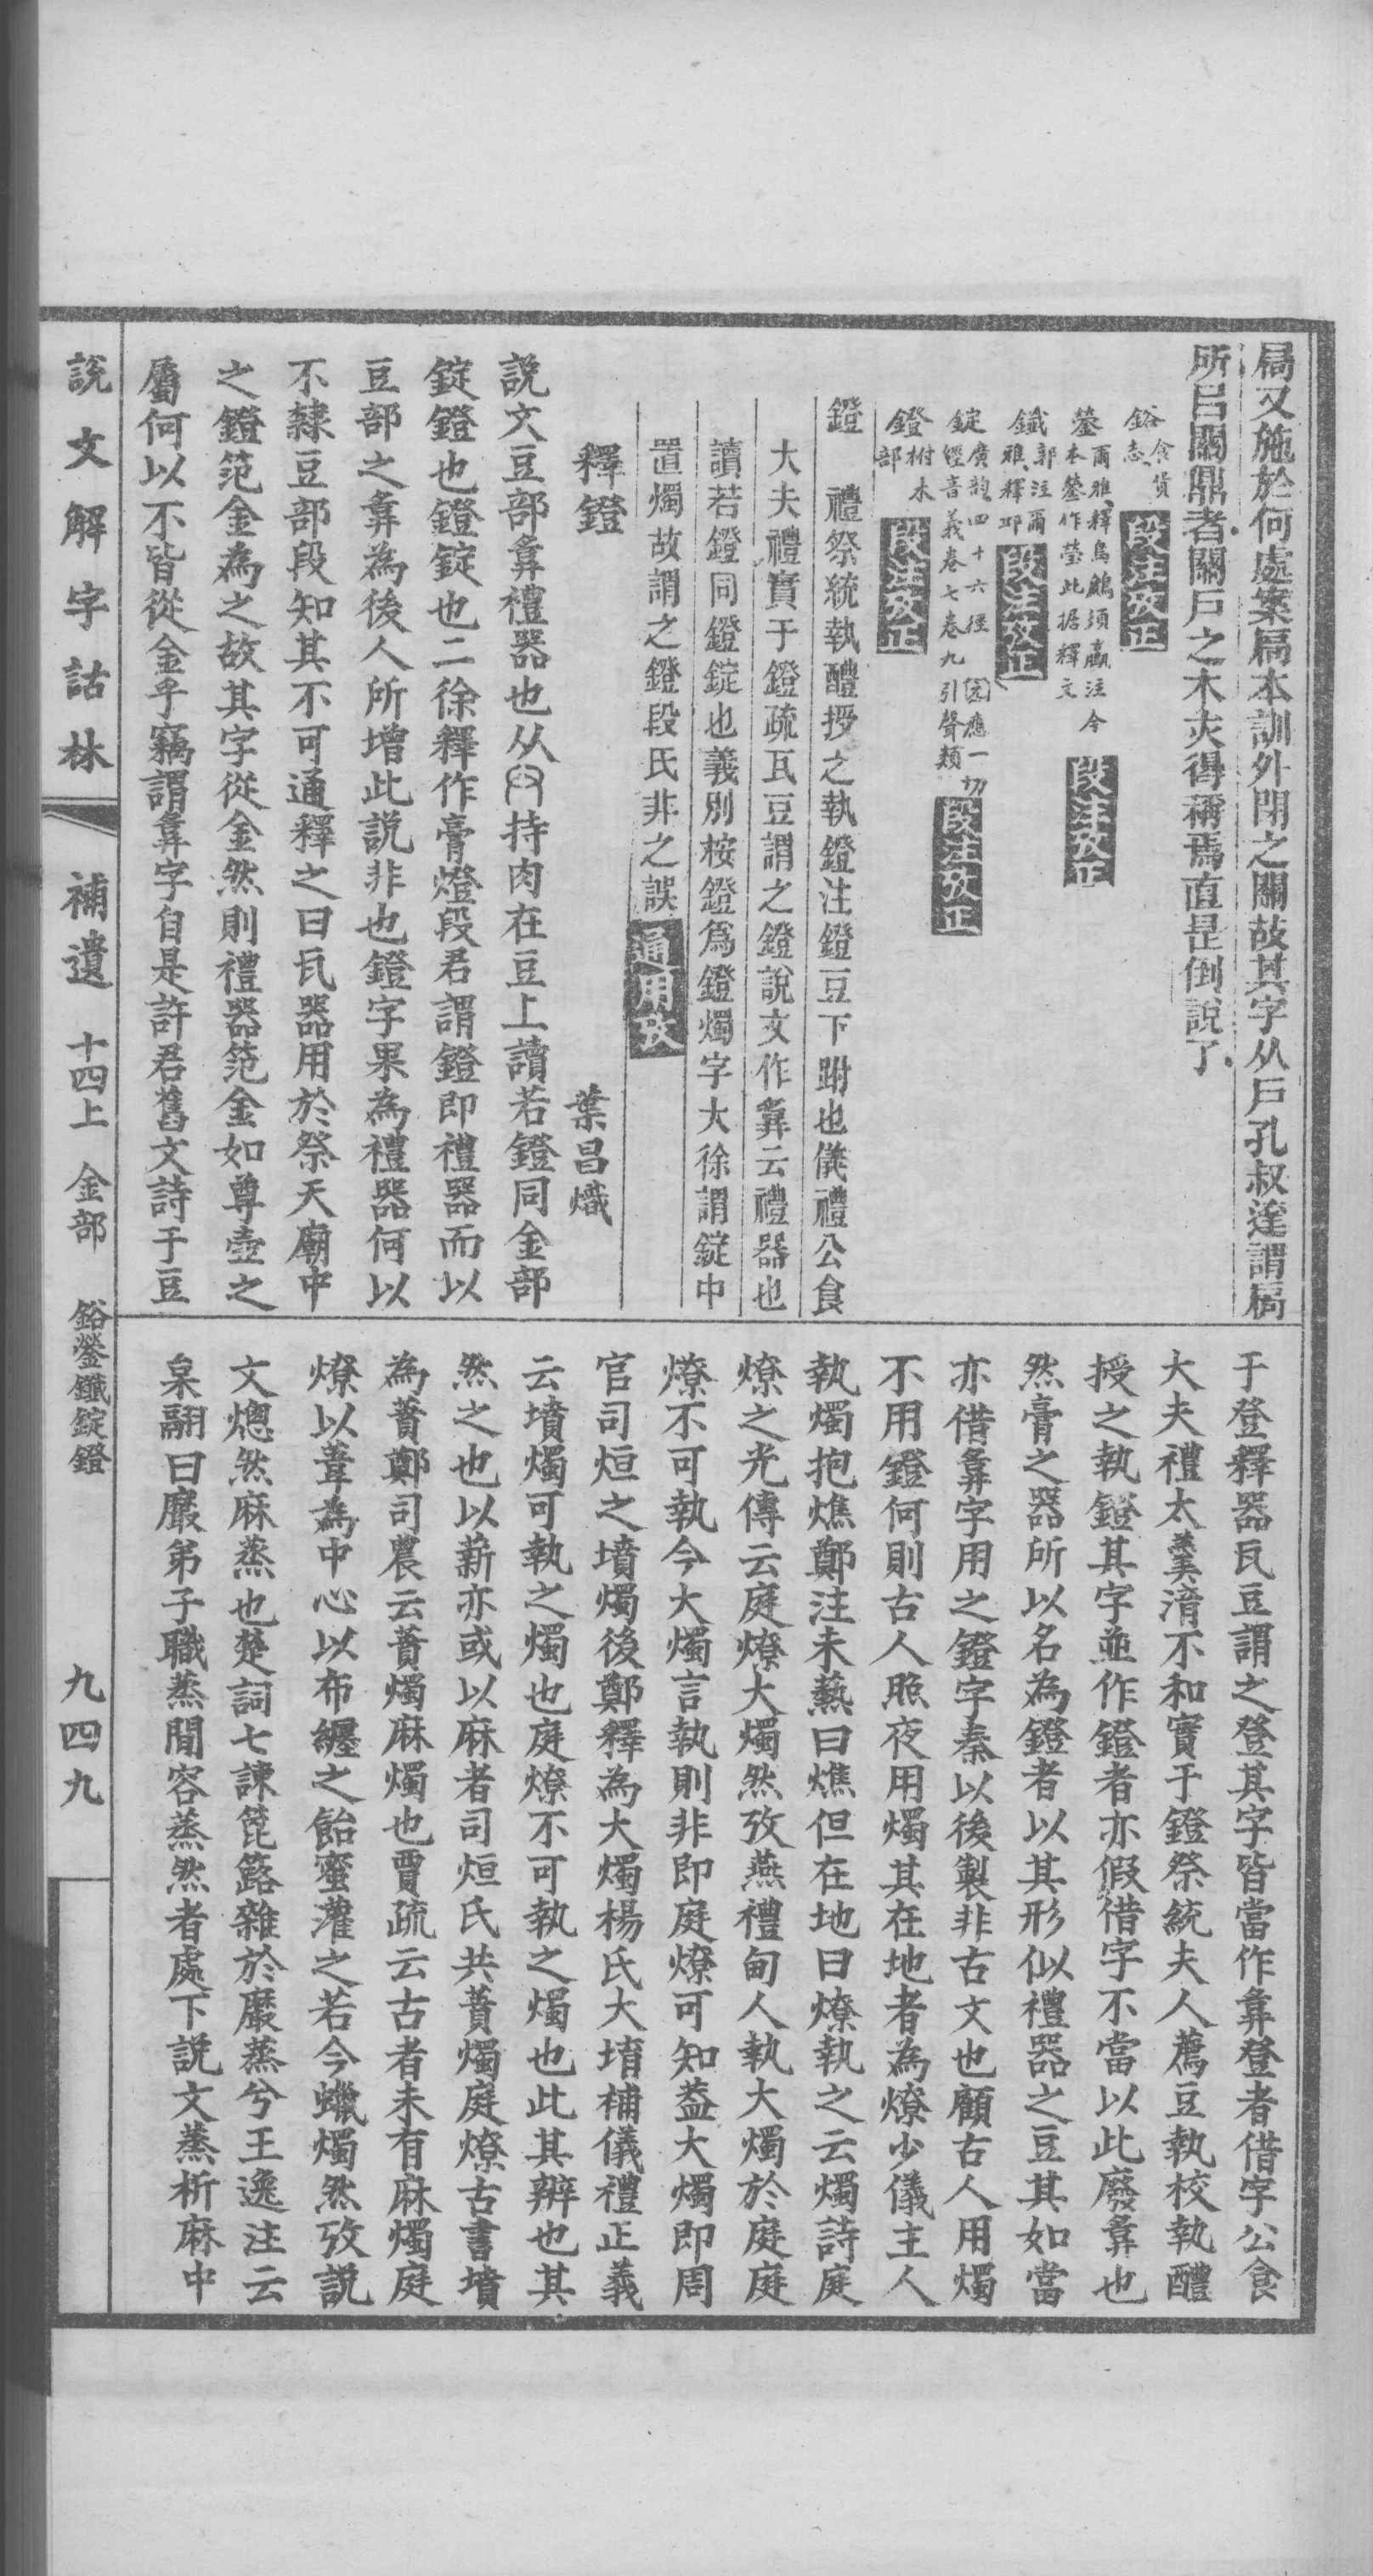 扃又施於何處案扃本訓外閉之關故其字从戶孔叔達謂扃
所㠯關鼎者關戶之木亦得稱焉直是倒說了
鉻 食貨志 段注攷正
鎣 爾雅釋鳥鷉須鸁注今本鎣作瑩此据釋文 段注攷正
鐵 郭注爾雅釋邱 段注攷正
錠 廣韵四十六徑 玄應一切經音義卷七卷九引聲類 段注攷正
鐙 木部柎 段注攷正
鐙 禮祭統執醴授之執鐙注鐙豆下跗也儀禮公食
大夫禮實于鐙疏瓦豆謂之鐙說文作𤼷云禮器也
讀若鐙同鐙錠也義別桉鐙爲鐙燭字大徐謂錠中
置燭故謂之鐙段氏非之誤 通用攷
釋鐙 葉昌熾
說文豆部𤼷禮器也从𠬞持肉在豆上讀若鐙同金部
錠鐙也鐙錠也二徐釋作膏燈段君謂鐙即禮器而以
豆部之𤼷為後人所增此說非也鐙字果為禮器何以
不隸豆部段知其不可通釋之曰瓦器用於祭天廟中
之鐙笵金為之故其字從金然則禮器笵金如尊壺之
屬何以不皆從金乎竊謂𤼷字自是許君舊文詩于豆
于登釋器瓦豆謂之登其字皆當作𤼷登者借字公食
大夫禮太羹湆不和實于鐙祭統夫人薦豆執校執醴
授之執鐙其字並作鐙者亦假借字不當以此廢𤼷也
然膏之器所以名為鐙者以其形似禮器之豆其如當
亦借𤼷字用之鐙字秦以後製非古文也顧古人用燭
不用鐙何則古人照夜用燭其在地者為燎少儀主人
執燭抱燋鄭注未爇曰燋但在地曰燎執之云燭詩庭
燎之光傳云庭燎大燭然攷燕禮甸人執大燭於庭庭
燎不可執今大燭言執則非即庭燎可知蓋大燭即周
官司烜之墳燭後鄭釋為大燭楊氏大堉補儀禮正義
云墳燭可執之燭也庭燎不可執之燭也此其辨也其
然之也以薪亦或以麻者司烜氏共蕡燭庭燎古書墳
為蕡鄭司農云蕡燭麻燭也賈疏云古者未有麻燭庭
燎以葦為中心以布纏之飴蜜灌之若今蠟燭然攷說
文熜然麻蒸也楚詞七諫箟簬雜於黀蒸兮王逸注云
枲翮曰黀弟子職蒸閒容蒸然者處下說文蒸析麻中
說文解字詁林 補遺 十四上 金部 鉻鎣鐵錠鐙 九四九